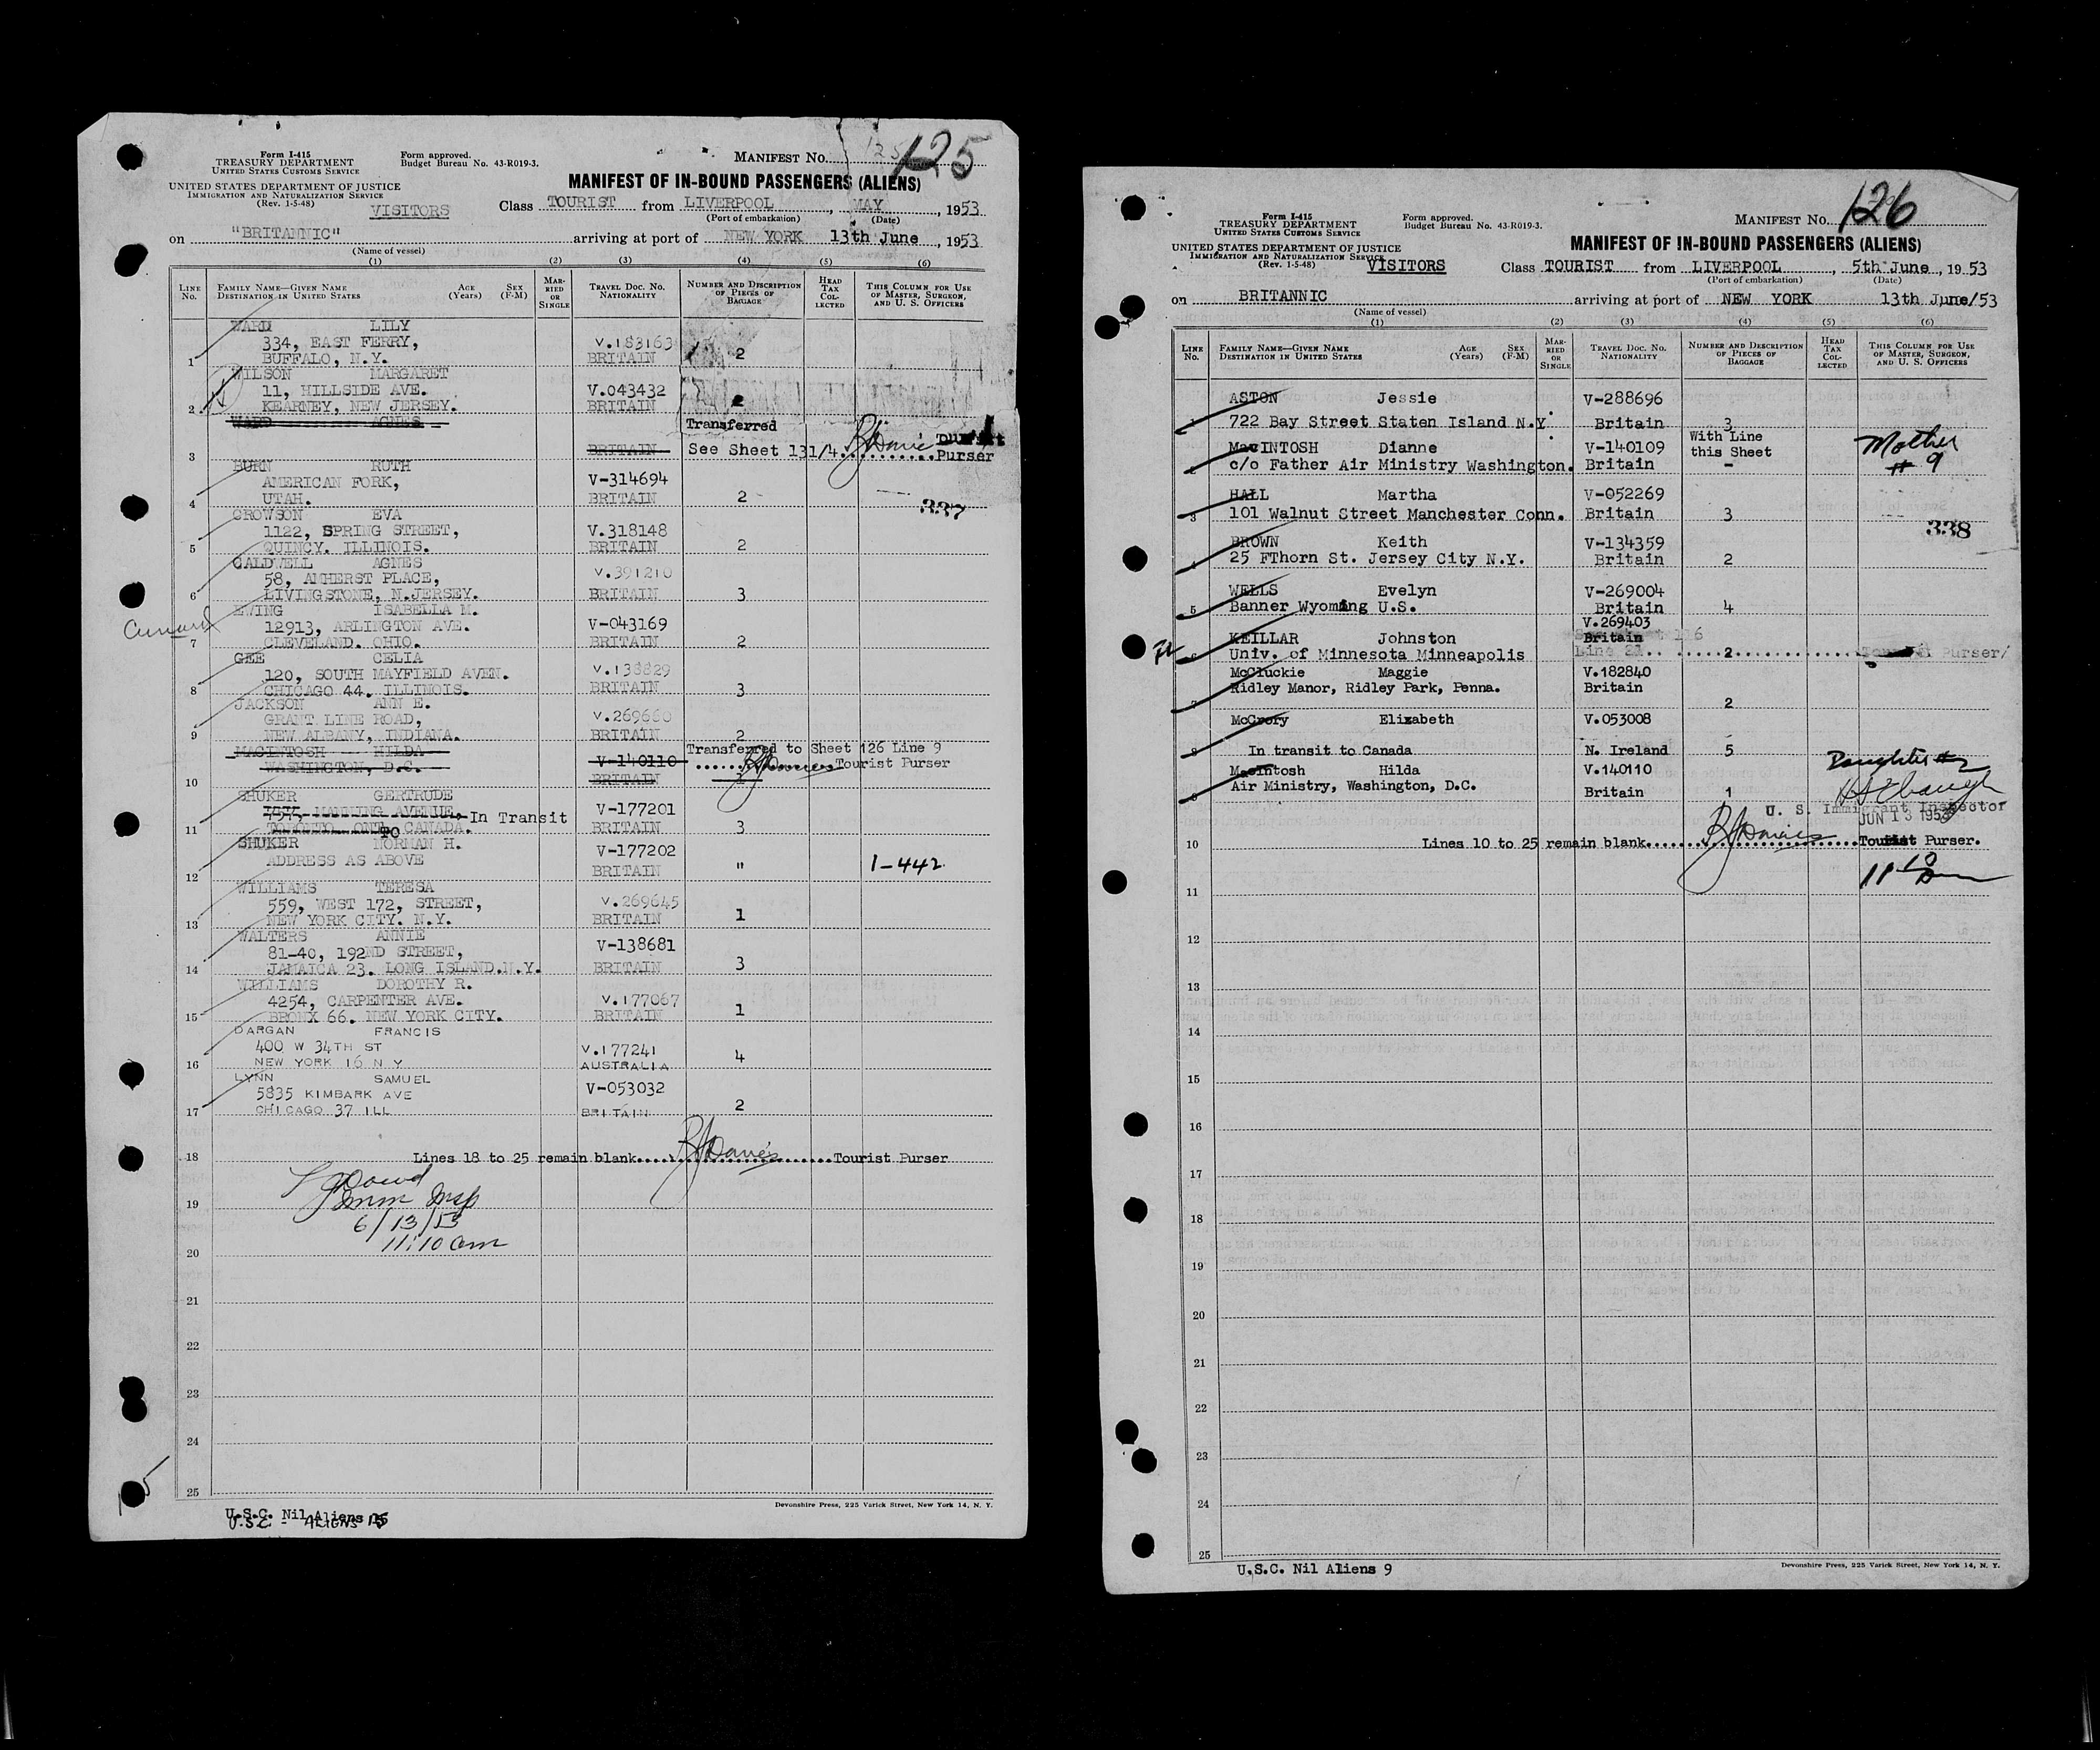 Form I-415
TREASURY DEPARTMENT
UNITED STATES CUSTOMS SERVICE
Form approved.
Budget Bureau No. 43-R019-3.
MANIFEST No. 125
UNITED STATES DEPARTMENT OF JUSTICE
IMMIGRATION AND NATURALIZATION SERVICE
(Rev. 1-5-48)
VISITORS
MANIFEST OF IN-BOUND PASSENGERS (ALIENS)
Class TOURIST from LIVERPOOL, MAY, 1953
(Port of embarkation) (Date)
on "BRITANNIC" arriving at port of NEW YORK 13th June, 1953
(Name of vessel)
(1) (2) (3) (4) (5) (6)
LINE No. FAMILY NAME—GIVEN NAME DESTINATION IN UNITED STATES AGE (Years) SEX (F-M) MARRIED OR SINGLE TRAVEL DOC. NO. NATIONALITY NUMBER AND DESCRIPTION OF PIECES OF BAGGAGE HEAD TAX COLLECTED THIS COLUMN FOR USE OF MASTER, SURGEON, AND U. S. OFFICERS
WARD LILY
334, EAST FERRY, V.183163
1 BUFFALO, N.Y. BRITAIN 2
WILSON MARGARET
11, HILLSIDE AVE. V.043432
2 KEARNEY, NEW JERSEY. BRITAIN 2
WARD AGNES Transferred
3 BRITAIN See Sheet 131/4 Purser
BURN RUTH
AMERICAN FORK, V-314694
4 UTAH. BRITAIN 2
337
CROWSON EVA
1122, SPRING STREET, V.318148
5 QUINCY. ILLINOIS. BRITAIN 2
CALDWELL AGNES
58, AMHERST PLACE, V.391210
6 LIVINGSTONE, N.JERSEY. BRITAIN 3
Cunard
EWING ISABELLA M.
12913, ARLINGTON AVE. V-043169
7 CLEVELAND. OHIO. BRITAIN 2
GEE CELIA
120, SOUTH MAYFIELD AVEN. V.138829
8 CHICAGO 44. ILLINOIS. BRITAIN 3
JACKSON ANN E.
GRANT LINE ROAD, V.269660
9 NEW ALBANY, INDIANA. BRITAIN 2
MACINTOSH HILDA Transferred to Sheet 126 Line 9
WASHINGTON, D.C. V-140110 Tourist Purser
10 BRITAIN 1
SHUKER GERTRUDE
MANNING AVENUE, In Transit V-177201
11 TORONTO ONT TO CANADA. BRITAIN 3
SHUKER NORMAN H. V-177202
ADDRESS AS ABOVE
12 BRITAIN " 1-442
WILLIAMS TERESA
559, WEST 172, STREET, V.269645
13 NEW YORK CITY. N.Y. BRITAIN 1
WALTERS ANNIE
81-40, 192ND STREET, V-138681
14 JAMAICA 23. LONG ISLAND.N.Y. BRITAIN 3
WILLIAMS DOROTHY R.
4254, CARPENTER AVE. V.177067
15 BRONX 66. NEW YORK CITY. BRITAIN 1
DARGAN FRANCIS
400 W 34TH ST V.177241
16 NEW YORK 16 N Y AUSTRALIA 4
LYNN SAMUEL
5835 KIMBARK AVE V-053032
17 CHICAGO 37 ILL BRITAIN 2
18 Lines 18 to 25 remain blank RJDavies Tourist Purser
19 Imm Insp
6/13/53
20 11:10 am
21
22
23
24
25
Devonshire Press, 225 Varick Street, New York 14, N. Y.
U.S.C. Nil Aliens 15
U.S.C - ALIENS 15
Form I-415
TREASURY DEPARTMENT
UNITED STATES CUSTOMS SERVICE
Form approved.
Budget Bureau No. 43-R019-3.
MANIFEST No. 126
UNITED STATES DEPARTMENT OF JUSTICE
IMMIGRATION AND NATURALIZATION SERVICE
(Rev. 1-5-48)
VISITORS
MANIFEST OF IN-BOUND PASSENGERS (ALIENS)
Class TOURIST from LIVERPOOL, 5th June, 1953
(Port of embarkation) (Date)
on BRITANNIC arriving at port of NEW YORK 13th June/53
(Name of vessel)
(1) (2) (3) (4) (5) (6)
LINE No. FAMILY NAME—GIVEN NAME DESTINATION IN UNITED STATES AGE (Years) SEX (F-M) MARRIED OR SINGLE TRAVEL DOC. NO. NATIONALITY NUMBER AND DESCRIPTION OF PIECES OF BAGGAGE HEAD TAX COLLECTED THIS COLUMN FOR USE OF MASTER, SURGEON, AND U. S. OFFICERS
ASTON Jessie V-288696
1 722 Bay Street Staten Island N.Y. Britain 3
MacINTOSH Dianne V-140109 With Line this Sheet Mother # 9
2 c/o Father Air Ministry Washington. Britain -
HALL Martha V-052269
3 101 Walnut Street Manchester Conn. Britain 3
338
BROWN Keith V-134359
4 25 FThorn St. Jersey City N.Y. Britain 2
WELLS Evelyn V-269004
5 Banner Wyoming U.S. Britain 4
V.269403
KEILLAR Johnston Britain
6 Univ. of Minnesota Minneapolis Line 21 2 Purser/
McCluckie Maggie V.182840
Ridley Manor, Ridley Park, Penna. Britain
7 2
McCrory Elizabeth V.053008
8 In transit to Canada N. Ireland 5
MacIntosh Hilda V.140110 Daughter #2
9 Air Ministry, Washington, D.C. Britain 1
U. S. Immigrant Inspector
JUN 13 1953
10 Lines 10 to 25 remain blank RJDavies Tourist Purser.
11
12
13
14
15
16
17
18
19
20
21
22
23
24
25
Devonshire Press, 225 Varick Street, New York 14, N. Y.
U.S.C. Nil Aliens 9